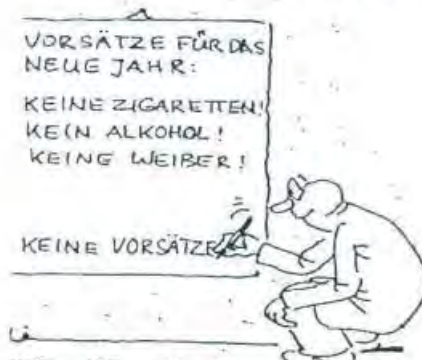 VORSÄTZE FÜR DAS
NEUE JAHR:
KEINE ZIGARETTEN!
KEIN ALKOHOL!
KEINE WEIBER!
KEINE VORSÄTZE